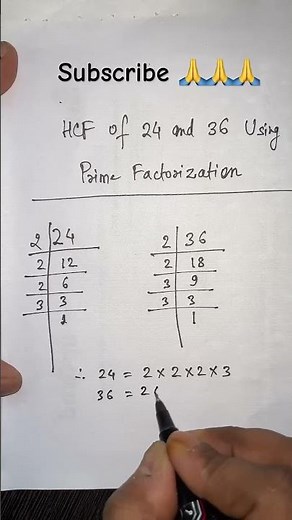 Subscribe 🙏🙏🙏
HCF of 24 and 36 Using
Prime Factorization
2 24
2 12
2 6
3 3
1
2 36
2 18
3 9
3 3
1
∴ 24 = 2 × 2 × 2 × 3
36 = 2